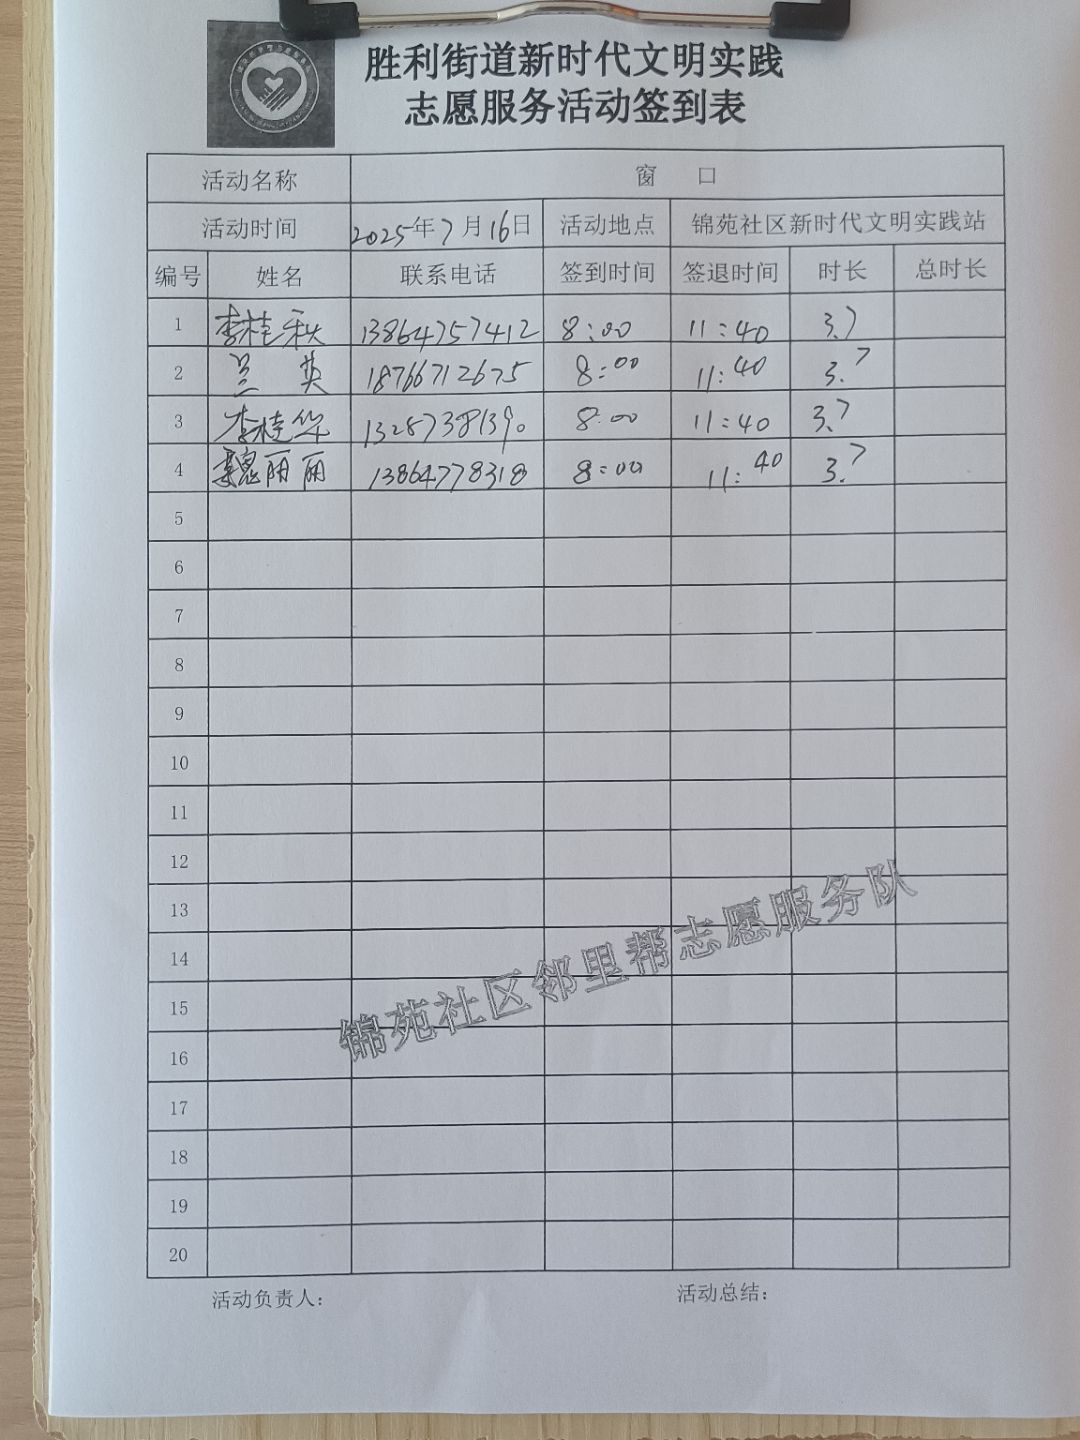 胜利街道新时代文明实践
志愿服务活动签到表
活动名称 窗 口
活动时间 2025年7月16日 活动地点 锦苑社区新时代文明实践站
编号 姓名 联系电话 签到时间 签退时间 时长 总时长
1 李桂秋 13864757412 8:00 11:40 3.7
2 兰英 18766712675 8:00 11:40 3.7
3 李桂华 13287381390 8:00 11:40 3.7
4 魏丽丽 13864778318 8:00 11:40 3.7
5
6
7
8
9
10
11
12
13
14
15
16
17
18
19
20
锦苑社区邻里帮志愿服务队
活动负责人: 活动总结: